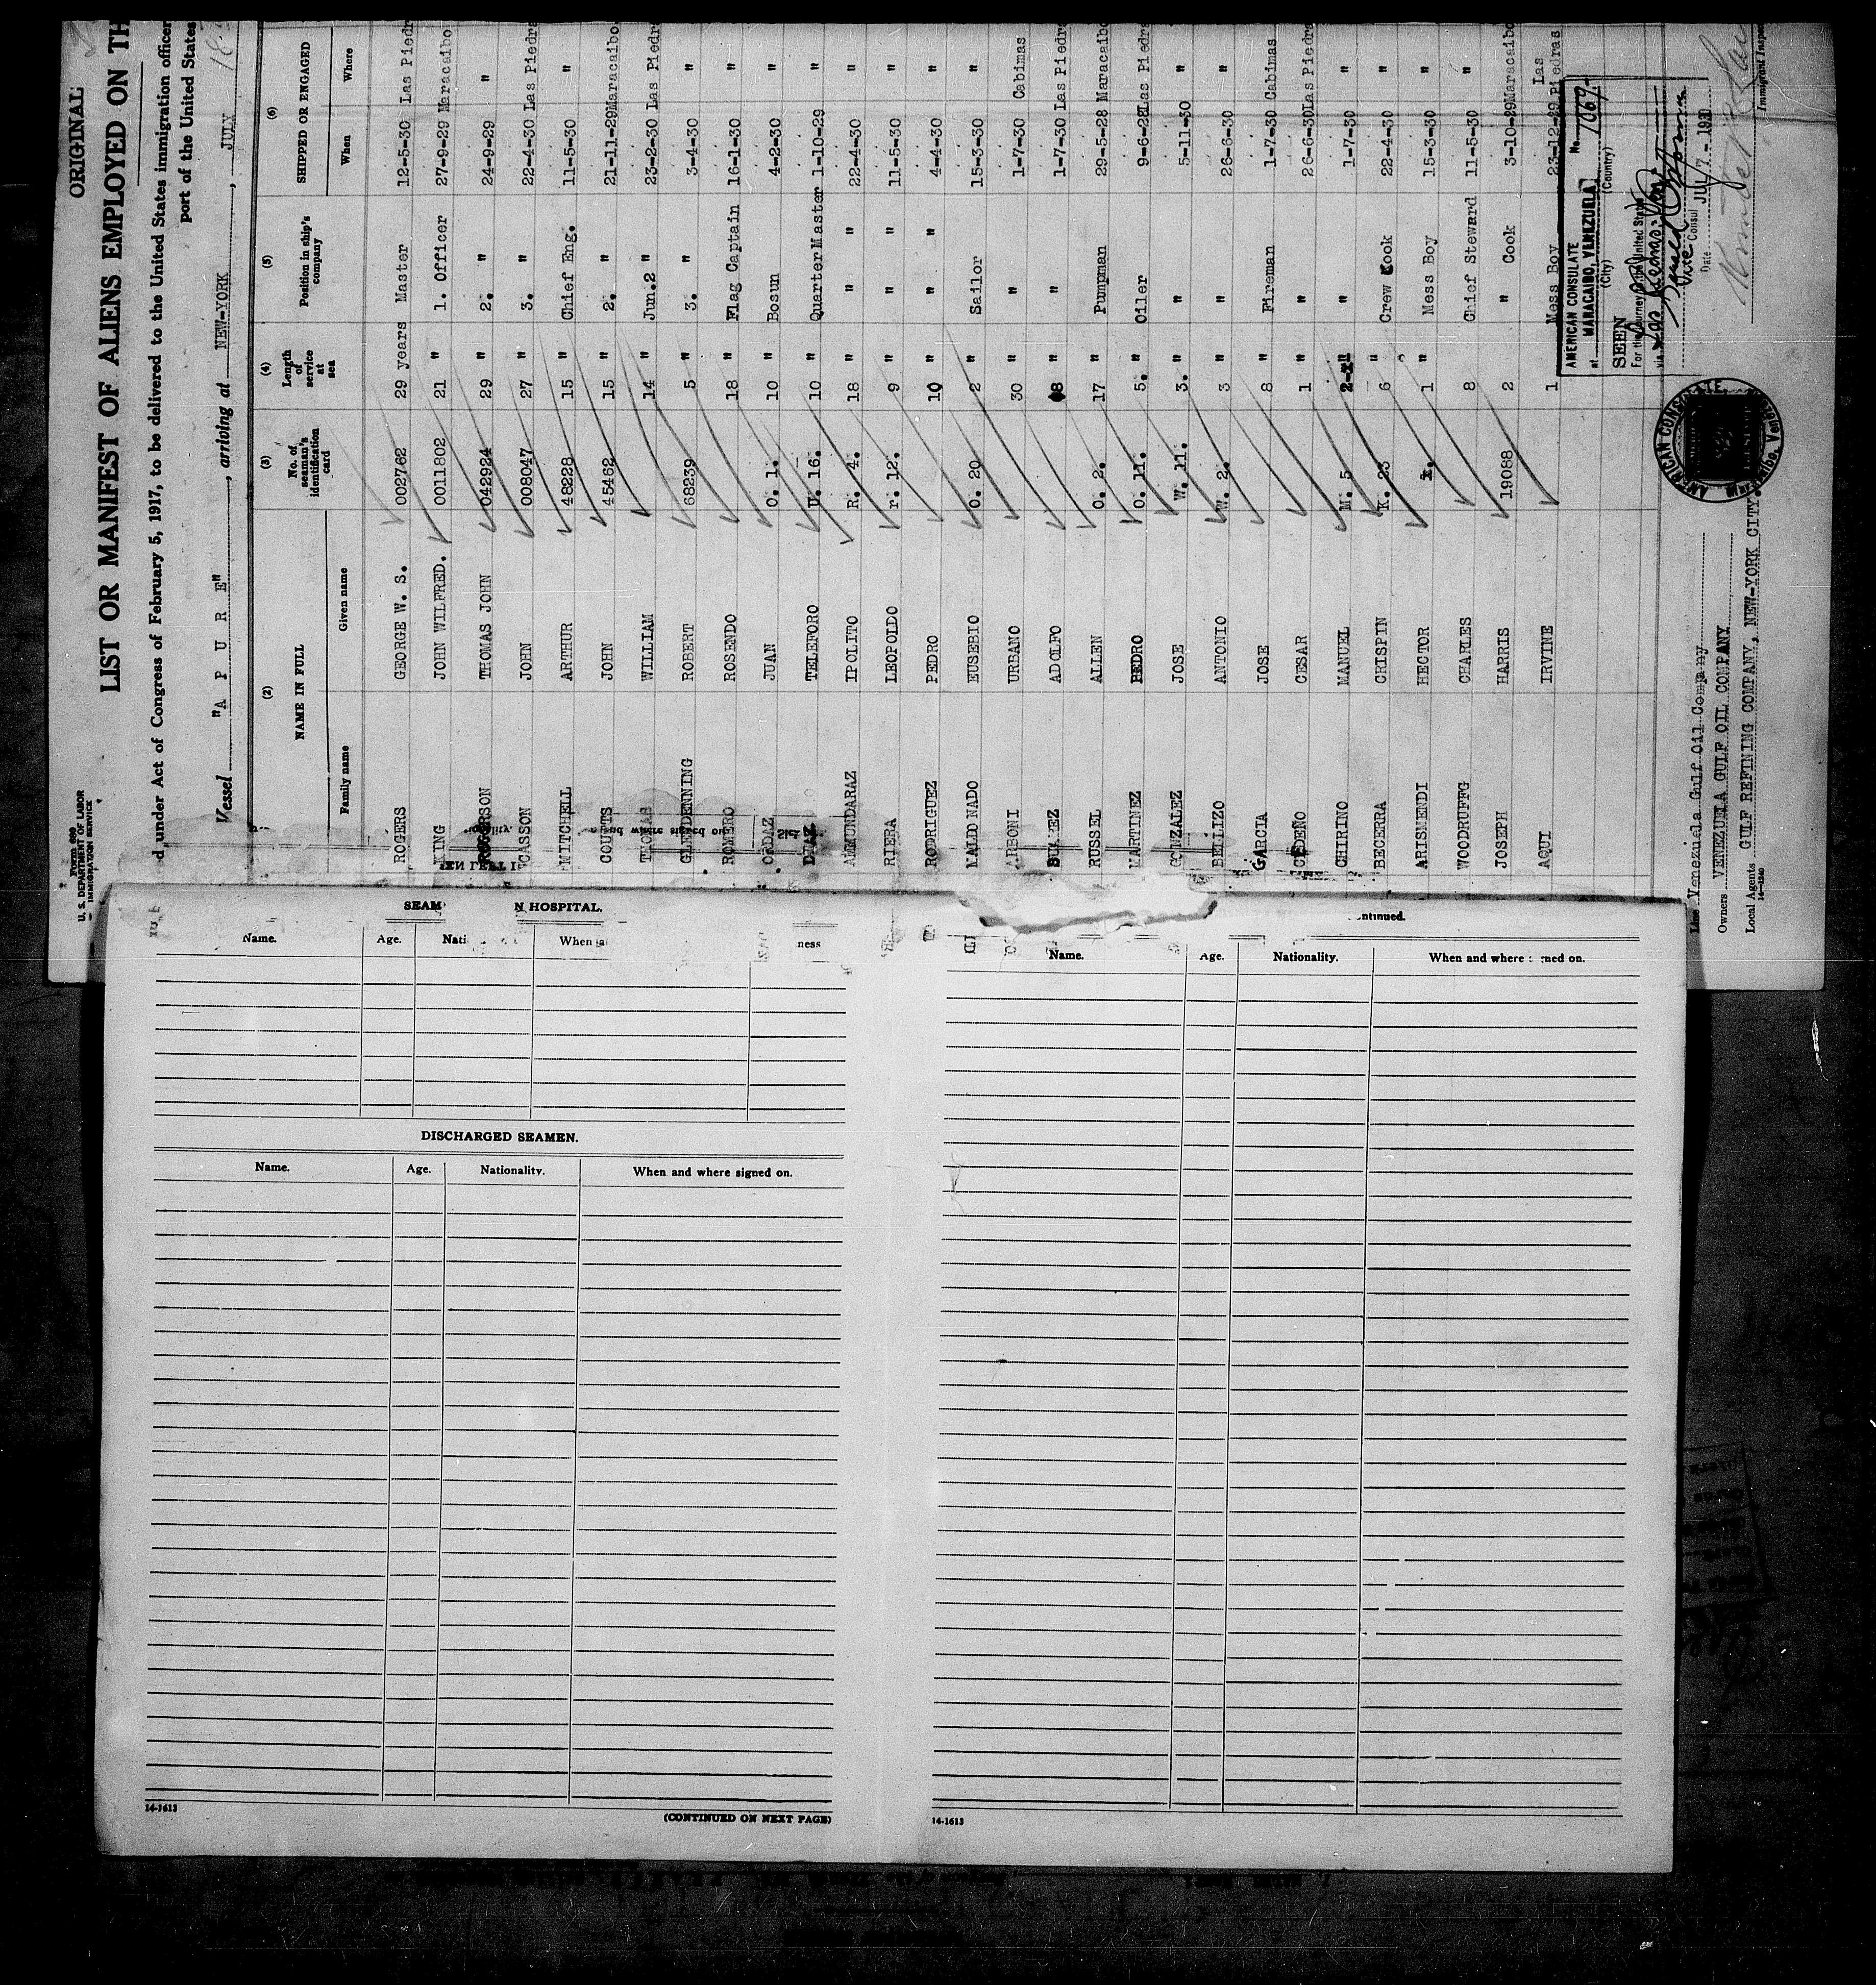 ORIGINAL
Form 689
U. S. DEPARTMENT OF LABOR
IMMIGRATION SERVICE
LIST OR MANIFEST OF ALIENS EMPLOYED ON TH
d under Act of Congress of February 5, 1917, to be delivered to the United States immigration officer
port of the United States
Vessel "A P U R E", arriving at NEW-YORK, JULY 18
(2) (3) (4) (5) (6)
NAME IN FULL No. of seaman's identification card Length of service at sea Position in ship's company SHIPPED OR ENGAGED
Family name Given name When Where
ROGERS GEORGE W. S. 002762 29 years Master 12-5-30 Las Piedr
KING JOHN WILFRED. 0011802 21 " 1. Officer 27-9-29 Maracaibo
ROGERSON THOMAS JOHN 042924 29 " 2. " 24-9-29 "
CASSON JOHN 008047 27 " 3. " 22-4-30 Las Piedr
MITCHELL ARTHUR 48228 15 " Chief Eng. 11-5-30 "
COUTTS JOHN 45462 15 " 2. " 21-11-29 Maracaibo
THOMAS WILLIAM 14 " Jun.2 " 23-2-30 Las Piedr
GLENDENNING ROBERT 68239 5 " 3. " 3-4-30 "
ROMERO ROSENDO 18 " Flag Captain 16-1-30 "
ORDAZ JUAN O. 1. 10 " Bosun 4-2-30 "
DIAZ TELEFORO U. 16. 10 " QuarterMaster 1-10-29 "
ARMUNDARAZ IPOLITO R. 4. 18 " " 22-4-30 "
RIERA LEOPOLDO r. 12. 9 " " 11-5-30 "
RODRIGUEZ PEDRO 10 " " 4-4-30 "
MALDONADO EUSEBIO O. 20 2 " Sailor 15-3-30 "
ARBONI URBANO 30 " " 1-7-30 Cabimas
ADOLFO 8 " " 1-7-30 Las Piedr
RUSSEL ALLEN O. 2. 17 " Pumpman 29-5-28 Maracaibo
MARTINEZ PEDRO O. 11. 5. " Oiler 9-6-28 Las Piedr
GONZALEZ JOSE W. 11. 3. " " 5-11-30 "
BELLIZO ANTONIO W. 2. 3 " " 26-6-30 "
GARCIA JOSE 8 " Fireman 1-7-30 Cabimas
CEDENO CESAR 1 " " 26-6-30 Las Piedra
CHIRINO MANUEL M. 5 " " 1-7-30 "
BECERRA CRISPIN K. 23 6 " Crew Cook 22-4-30 "
ARISMENDI HECTOR 1 " Mess Boy 15-3-30 "
WOODRUFFG CHARLES 8 Chief Steward 11-5-30 "
JOSEPH HARRIS 19088 2 " Cook 3-10-29 Maracaibo
AQUI IRVINE 1 Mess Boy 23-12-29 Las Piedras
AMERICAN CONSULATE No. 1069
at MARACAIBO, VENEZUELA
(City) (Country)
SEEN
For the journey to the United States
via Las Piedras, Ven.
Vice Consul
Date JULY 7 - 1930
Immigrant Inspe
AMERICAN CONSULATE
Maracaibo, Venez
Venezuela Gulf Oil Company
Owners VENEZUELA GULF OIL COMPANY
Local Agents GULF REFINING COMPANY, NEW-YORK CITY.
14-1240
SEAM N HOSPITAL.
Name. Age. Nati When a ness
DISCHARGED SEAMEN.
Name. Age. Nationality. When and where signed on.
14-1613
(CONTINUED ON NEXT PAGE)
ntinued.
Name. Age. Nationality. When and where ned on.
14-1613